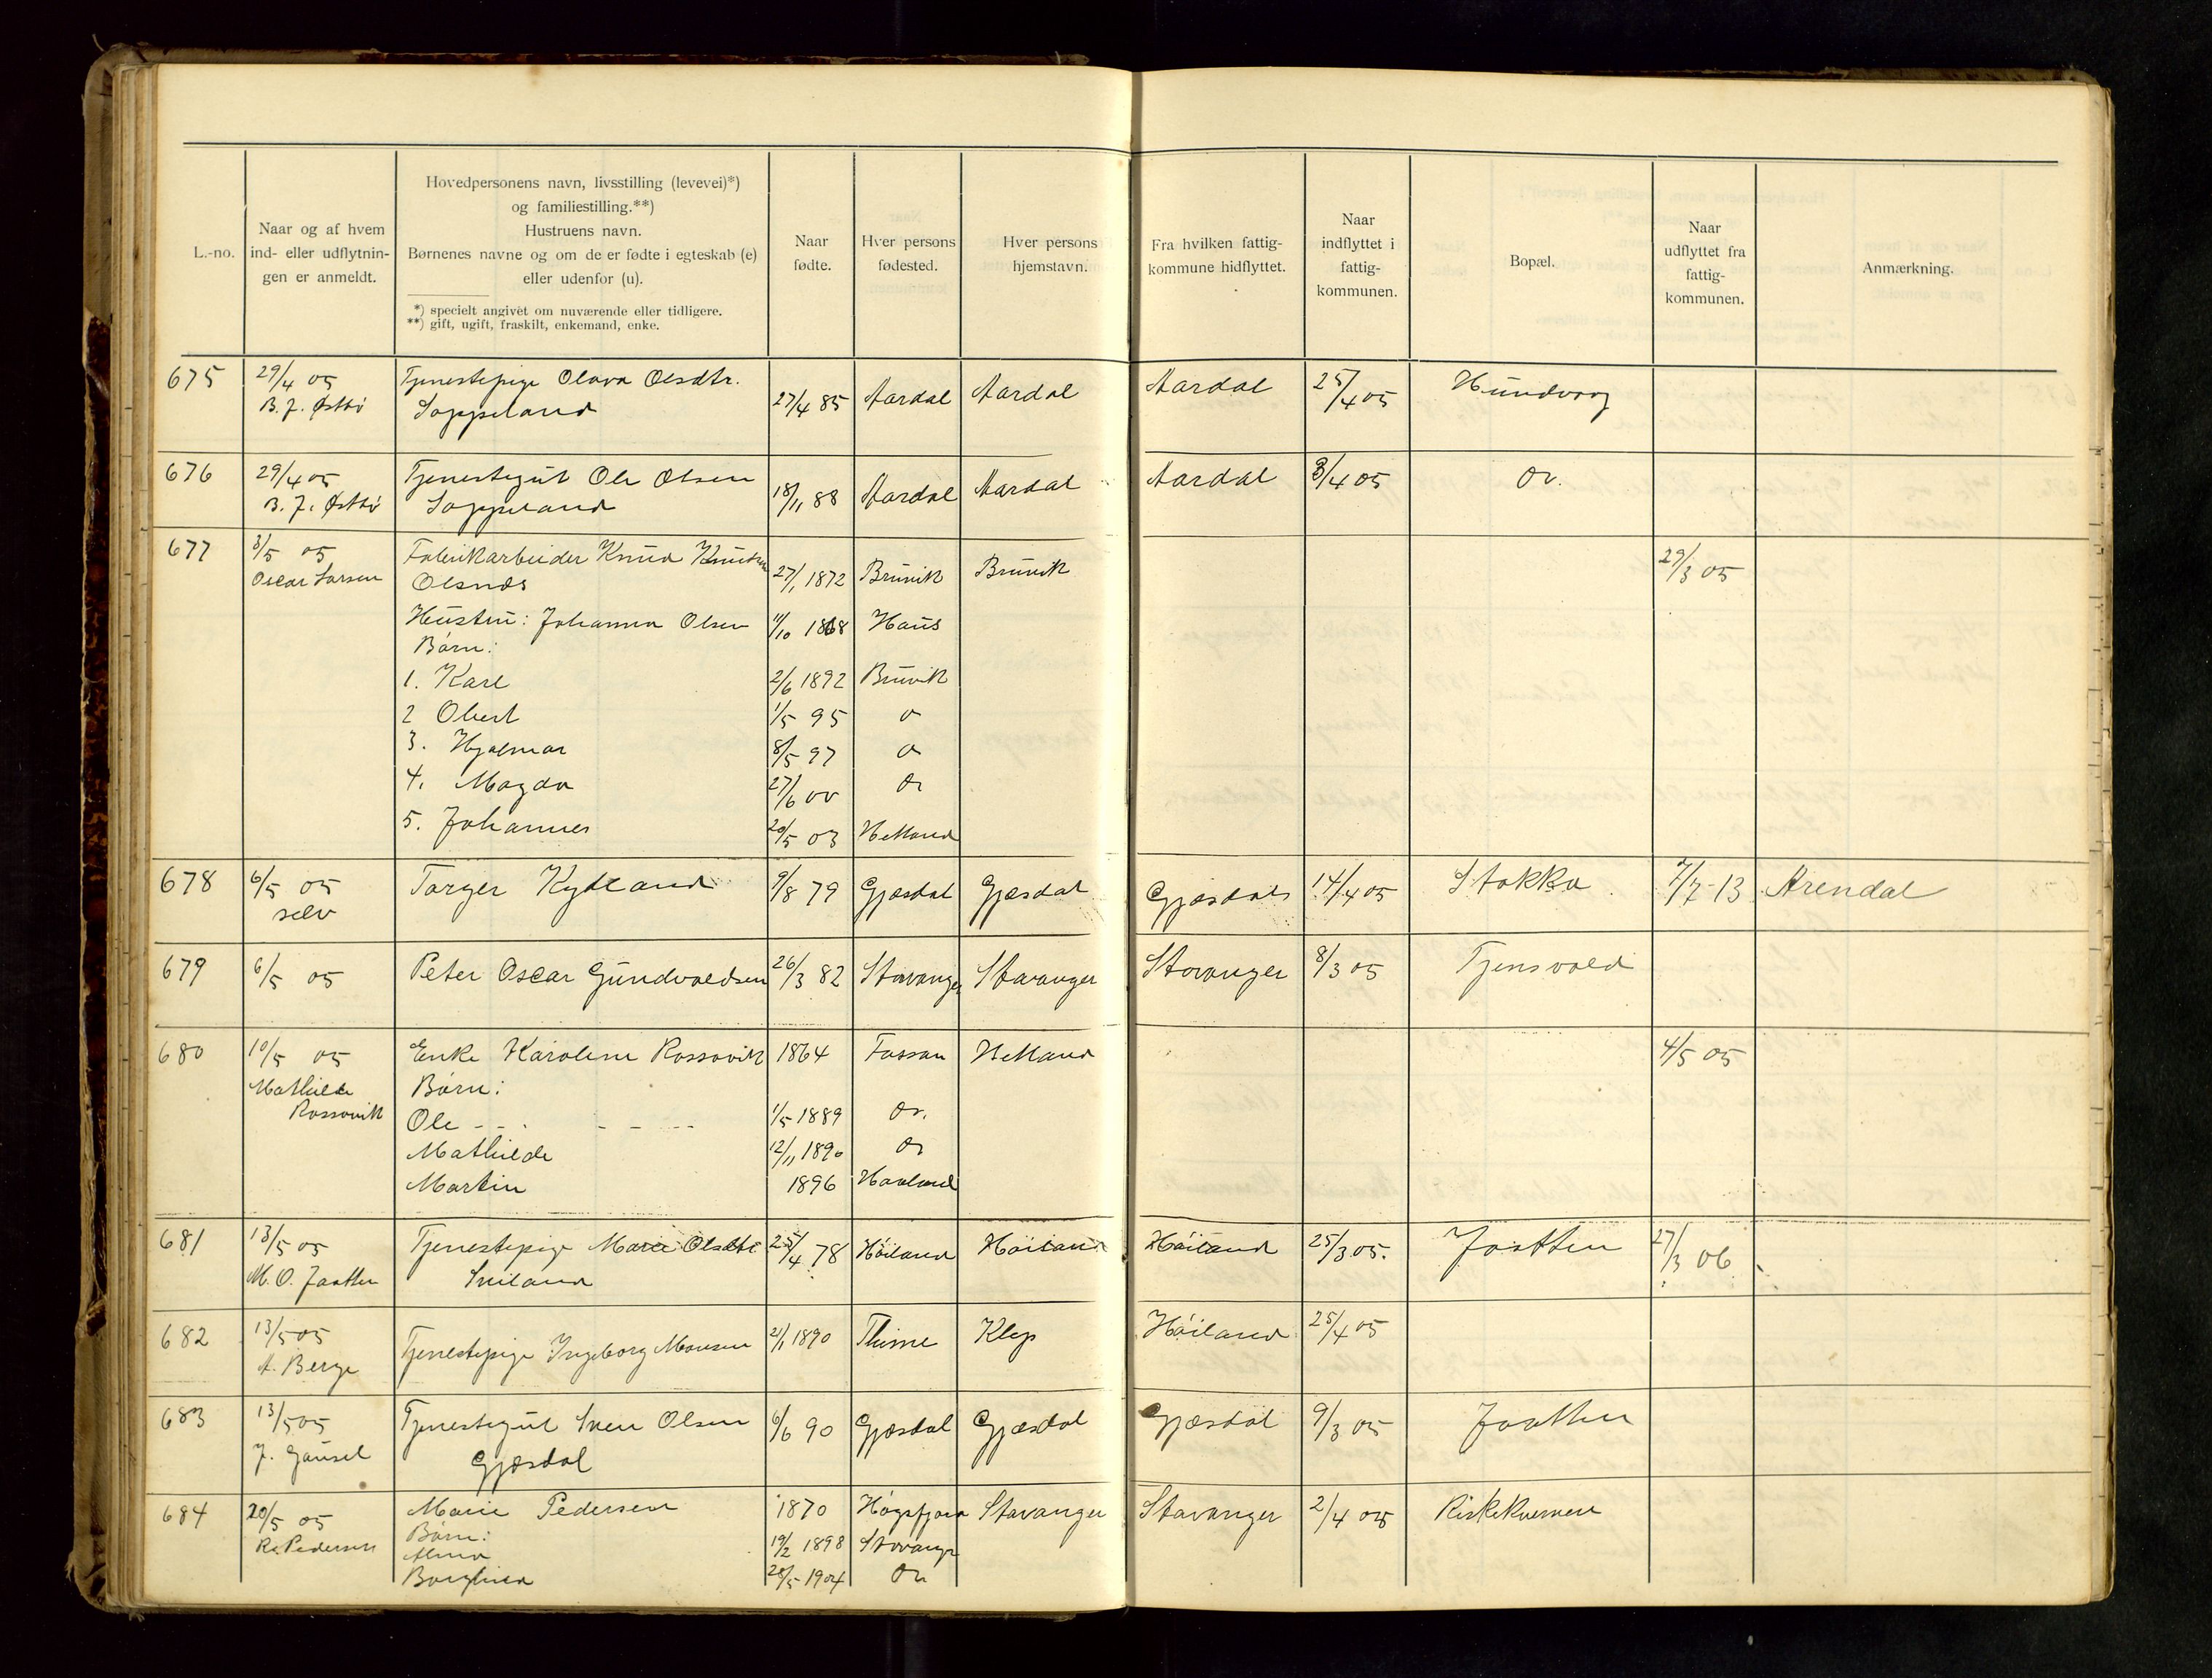 L.-no.
Naar og af hvem
ind- eller udflytnin-
gen er anmeldt.
Hovedpersonens navn, livsstilling (levevei)*)
og familiestilling.**)
Hustruens navn.
Børnenes navne og om de er fødte i egteskab (e)
eller udenfor (u).
*) specielt angivet om nuværende eller tidligere.
**) gift, ugift, fraskilt, enkemand, enke.
Naar
fødte.
Hver persons
fødested.
Hver persons
hjemstavn.
Fra hvilken fattig-
kommune hidflyttet.
Naar
indflyttet i
fattig-
kommunen.
Bopæl.
Naar
udflyttet fra
fattig-
kommunen.
Anmærkning.
675 29/4 05 Tjenestepige Olava Olsdtr. 27/4 85 Aardal Aardal Aardal 25/4 05 Hundvaag
B. J. Østbø Soppeland
676 29/4 05 Tjenestegut Ole Olsen 18/11 88 Aardal Aardal Aardal 3/4 05 do.
B. J. Østbø Soppeland
677 3/5 05 Fabrikarbeider Knud Knutsen 27/1 1872 Bruvik Bruvik 29/3 05
Oscar Larsen Olsnes
Hustru: Johanna Olsen 11/10 1868 Haus
Børn:
1. Karl 2/6 1892 Bruvik
2 Obert 1/5 95 do
3. Hjalmar 8/5 97 do
4. Magda 27/6 00 do
5. Johannes 20/5 03 Hetland
678 6/5 05 Torger Kydland 9/8 79 Gjæsdal Gjæsdal Gjæsdal 14/4 05 Stokka 7/7-13 Arendal
selv
679 6/5 05 Peter Oscar Gundvaldsen 26/3 82 Stavanger Stavanger Stavanger 8/3 05 Tjensvold
680 10/5 05 Enke Karoline Rossavik 1864 Fossan Hetland 4/5 05
Mathilde Børn:
Rossavik
Ole - - - - - 1/5 1889 do.
Mathilde 12/11 1890 do
Martin 1896 Haaland
681 13/5 05 Tjenestepige Marie Olsdtr 25/4 78 Høiland Høiland Høiland 25/3 05. Jaatten 27/3 06
M. O. Jaatten Sviland
682 13/5 05 Tjenestepige Ingeborg Monsen 21/1 1890 Thime Klep Høiland 25/4 05
A. Berge
683 13/5 05 Tjenestegut Sven Olsen 6/6 90 Gjæsdal Gjæsdal Gjæsdal 9/3 05 Jaatten
J. Gausel Gjæsdal
684 20/5 05 Marie Pedersen 1870 Høgsfjord Stavanger Stavanger 2/4 05 Riskekvernen
R. Pedersen Børn:
Alma 19/2 1898 Stavanger
Borghild 28/5 1904 do